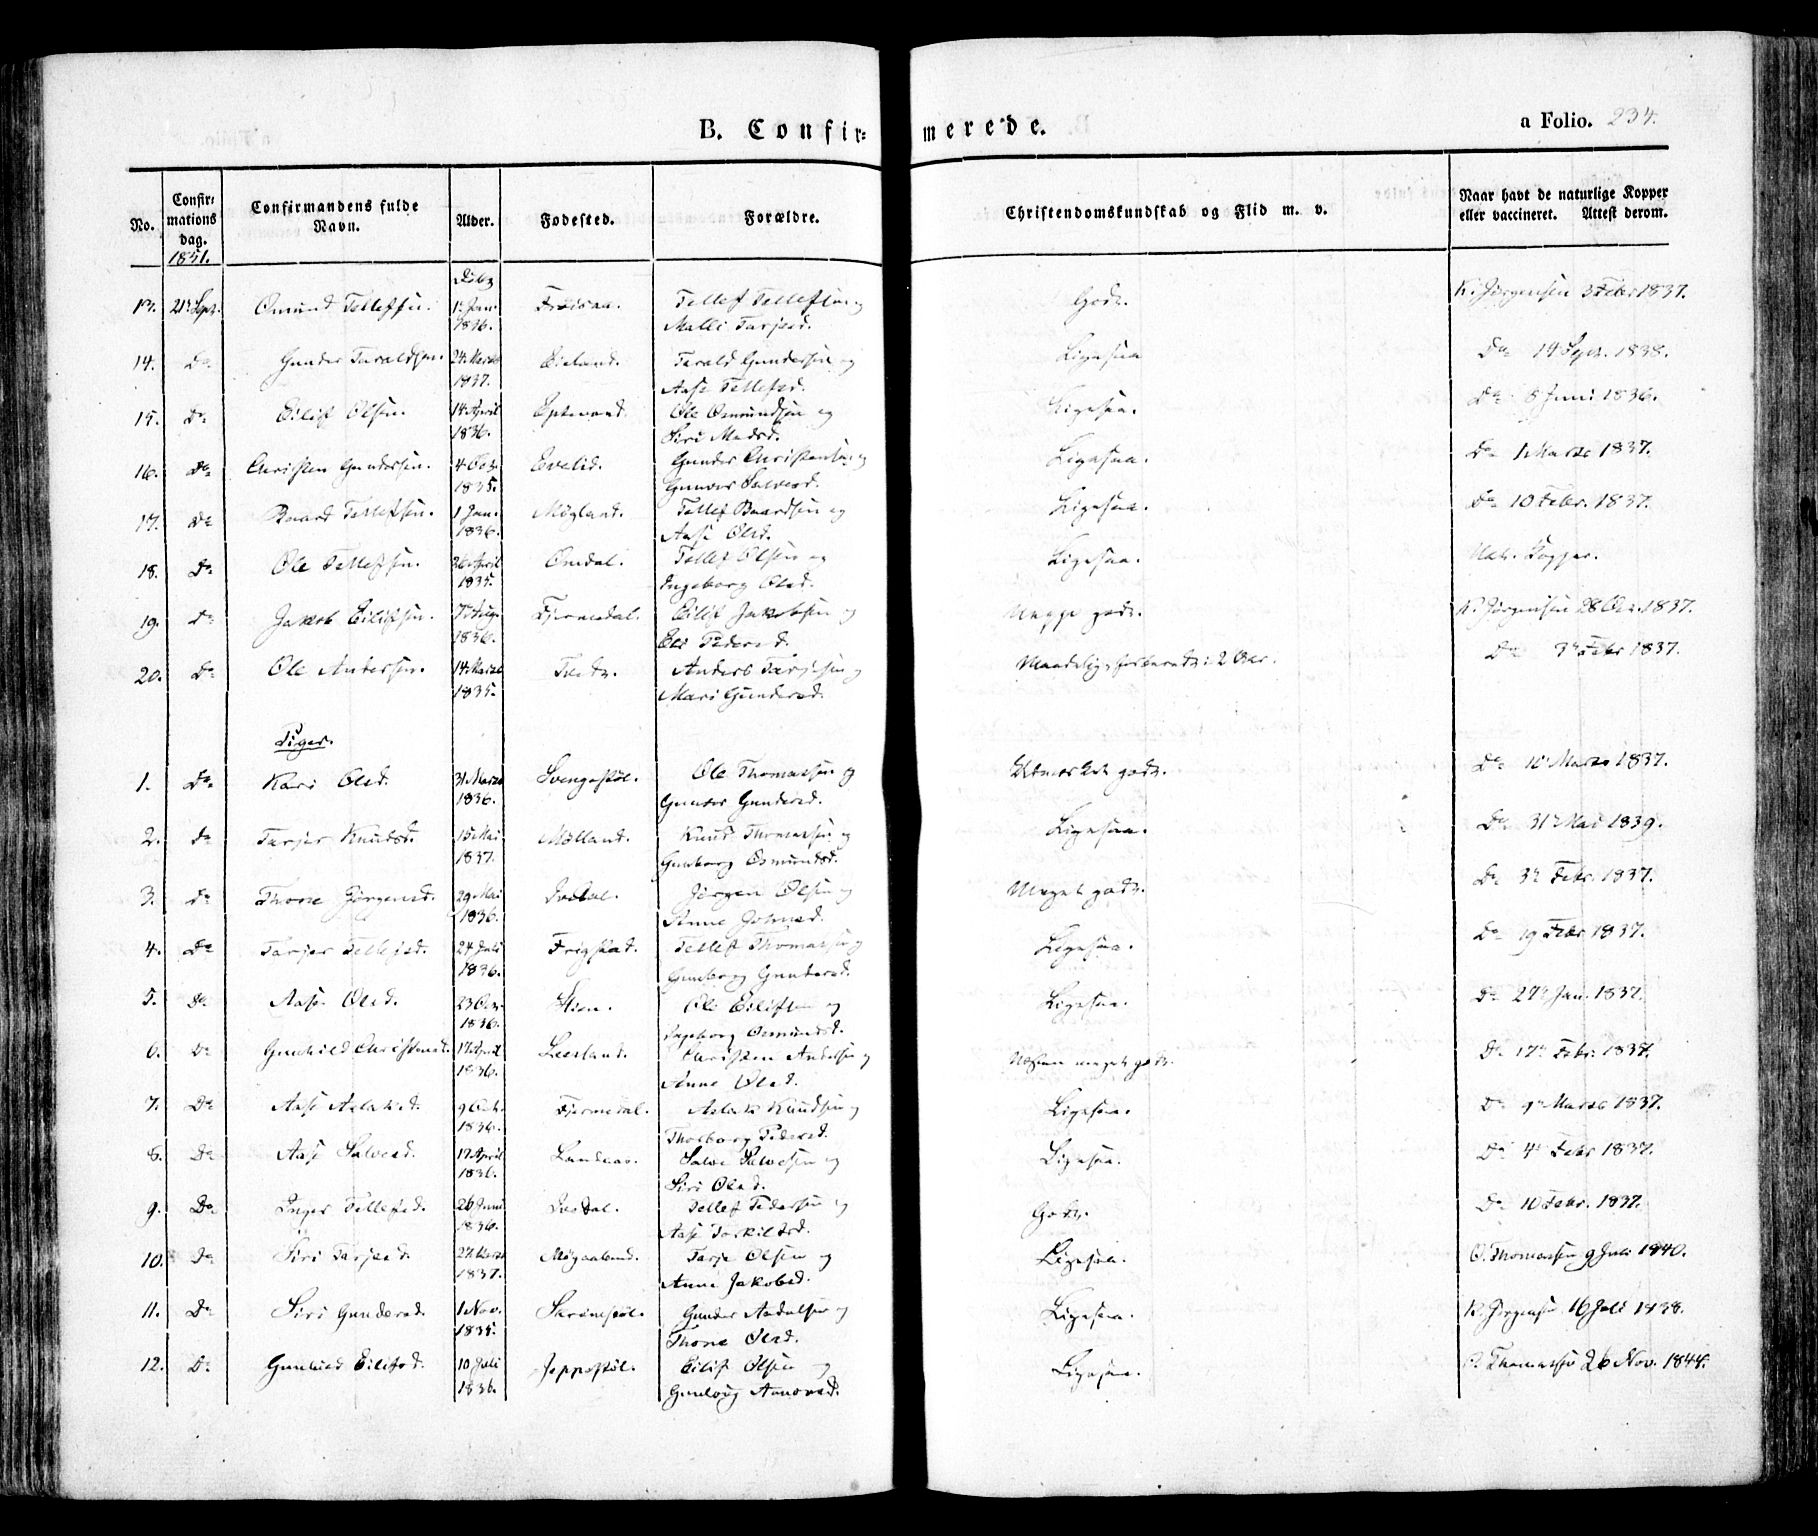 B. Confir-merede.
a Folio. 234.
No. Confirmations dag. Confirmandens fulde Navn. Alder. Fødested. Forældre. Christendomskundskab og Flid m. v. Naar havt de naturlige Kopper eller vaccineret. Attest derom.
1851.
13. 21 Sept. Omund Tellefsen. 1 Jan. Tellef Tellefsen og Godt. K. Jørgensen 3 Febr 1837.
1836. Malli Tarjesd.
14. Do Gunder Taraldsen. 24 Marts Øieland. Tarald Gundersen og Ligesaa Do 14 Sept. 1838.
1837. Aase Tellefsd.
15. Do Eilif Olsen. 14 April Eptevand. Ole Osmundsen og Ligesaa. Do 8 Juni 1836.
1836. Siri Madsd.
16. Do Christen Gundersen. 4 Oct. Evelid. Gunder Christensen og Ligesaa. Do 1 Marts 1837.
1835. Gunvor Salvesd.
17. Do Baard Tellefsen. 1 Jan. Møgland. Tellef Baardsen og Ligesaa. Do 10 Febr. 1837.
1836. Aase Olsd.
18. Do Ole Tellefsen. 26 April Omdal. Tellef Olsen og Ligesaa. Nat. Kopper.
1835. Ingeborg Olsd.
19. Do Jakob Eilifsen. 7 Aug. Fjermedal. Eilif Jakobsen og Meget godt. K. Jørgensen 28 Oct. 1837.
1836. Pedersd.
20. Do Ole Andersen. 14 Marts Anders Tarjesen og 2 Aar. Do 3 Febr 1837.
1835. Mari Gundersd.
Piger.
1. Do Kari Olsd. 31 Marts Svengestøl. Ole Thomassen og Udmærket godt. Do 10 Marts 1837.
1836. Gunvor Gundersd.
2. Do Tarjer Knudsd. 15 Mai Mølland. Knud Thomassen og Ligesaa. Do 31 Mai 1839.
1837. Gunborg Osmundsd.
3. Do Thone Jørgensd. 29 Mai Ivedal. Jørgen Olsen og Meget godt. Do 3 Febr. 1837.
1836. Anne Johnsd.
4. Do Tarjer Tellefsd. 24 Juli Frigstad. Tellef Thomassen og Ligesaa. Do 19 Febr 1837.
1836. Gunborg Gundersd.
5. Do Aase Olsd. 23 Oct. Stien. Ole Eilifsen og Ligesaa. Do 27 Jan. 1837.
1836. Ingeborg Osmundsd.
6. Do Gunhild Christensd. 17 April Leerland. Christen Andersen og Næsten meget godt. Do 17 Febr. 1837.
1836. Anne Olsd.
7. Do Aase Aslaksd. 9 Oct. Fjermedal. Aslak Knudsen og Ligesaa. Do 9 Marts 1837.
1836. Thorborg Pedersd.
8. Do Aase Salvesd. 17 April Landaas. Salve Salvesen og Ligesaa. Do 4 Febr 1837.
1836. Siri Olsd.
9. Do Inger Tellefsd. 26 Juni Ivedal. Tellef Pedersen og Godt. Do 10 Febr. 1837.
1836. Aase Torkildsd.
10. Do Siri Tarjesd. 27 Marts Tarje Olsen og Ligesaa. O. Thomassen 9 Juli 1840.
1837. Anne Jakobsd.
11. Do Siri Gundersd. 1 Nov. Skrømestøl. Gunder Aadalsen og Ligesaa. K. Jørgensen 16 Juli 1838.
1835. Thone Olsd.
12. Do Gunhild Eilifsd. 10 Juli Jeppestøl. Eilif Olsen og Ligesaa. Thomassen 26 Nov. 1844.
1836. Gundvig